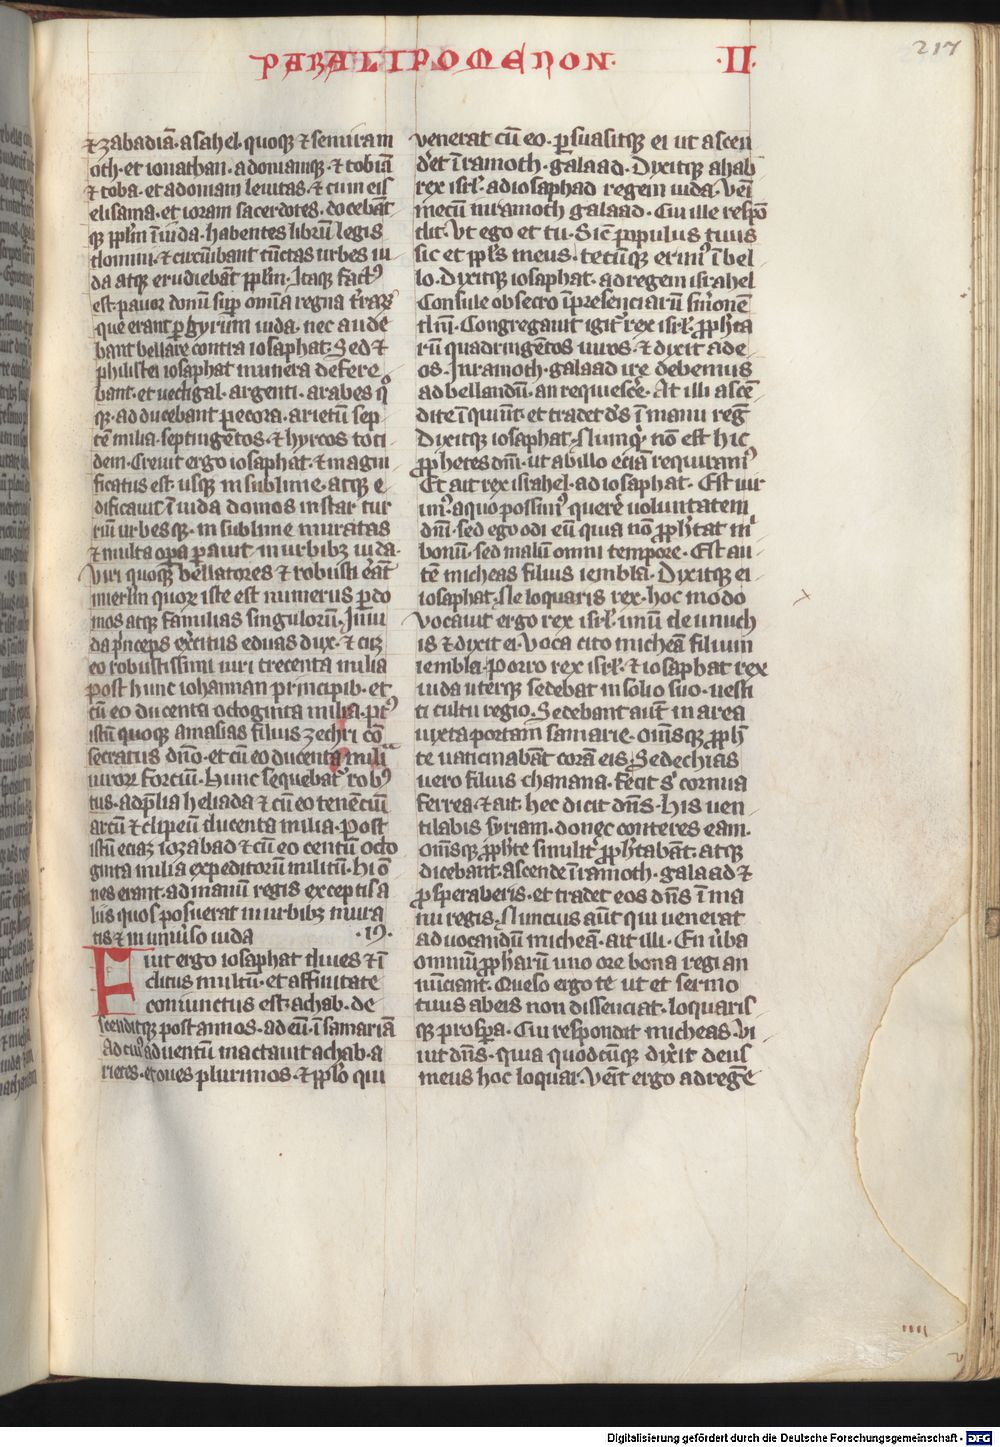 PARALIPOMENON · II ·
217
⁊ zabadiā · asahel · quoqꝫ ⁊ semiram
oth · et ionathan · adoniamqꝫ · ⁊ tobiā
⁊ toba · et adoniam leuitas · ⁊ cum eis
elisama · et ioram sacerdotes · docebāt
qꝫ ppl̄m ī iuda · habentes librū legis
domini · ⁊ circūibant cūctas urbes iu
da atqꝫ erudiebāt ppl̄m · Itaqꝫ factꝰ
est pauor domī suꝑ omīa regna t̄raꝝ
que erant ꝑ gyrum iuda · nec aude
bant bellare contra iosaphat · Sed ⁊
philistei iosaphat munera defere
bant · et uectigal · argenti · arabes qͦ
qꝫ · adducebant pecora · arietū sep
tē milia · septingētos · ⁊ hyrcos toti
dem · Creuit ergo iosaphat · ⁊ magni
ficatus est usqꝫ in sublime · atqꝫ e
dificauit ī iuda domos instar tur
riū urbesqꝫ · in sublime muratas
⁊ multa oꝑa parauit in urbibꝫ iuda ·
Viri quoqꝫ bellatores ⁊ robusti erāt
in ierl̄m quoꝝ iste est numerus ꝑ do
mos atqꝫ familias singulorū · In iu
da p̄nceps exercitus ednas dux · ⁊ cū
eo robustissimi uiri trecenta milia
post hunc iohannan princips · et
cū eo ducenta octoginta milia · pꝰt
istū quoqꝫ amasias filius zechri cō
secratus dn̄o · et cū eo ducenta mili
uiroꝝ fortiū · Hunc sequebat᷑ robꝰ
tus · ad p̄lia heliada ⁊ cū eo tenēciū
arcū ⁊ clipeū ducenta milia · Post
istū eciaꝫ iozabad ⁊ cū eo centū octo
ginta milia expeditorū militū · hi ō
nes erant · ad manū regis exceptis a
liis quos posuerat in urbibꝫ mura
tis ⁊ in uniuͥso iuda · 19 ·
Fuit ergo iosaphat diues ⁊ ī
clitus multū · et affinitate
coniunctus est achab · de
scenditqꝫ post annos · ad eū · ī samariā
Ad cuiꝰ aduentū mactauit achab · a
rietes · et oues plurimos · ⁊ ppl̄o qui
venerat cū eo · ꝑsuasitqꝫ ei ut ascen
d̄et ī ramoth · galaad · Dyxitqꝫ ahab
rex isrl̄ · ad iosaphad regem iuda · Veni
mecū in ramoth galaad · Cui ille respō
dit · Vt ego et tu · Sic populus tuus
sic et ppl̄s meus · tecūqꝫ erimꝰ ī bel
lo · Dyxitqꝫ iosaphat · ad regem israhel
Consule obsecro īpresenciarū sm̄onē
dn̄i · Congregauit igit᷑ rex isrl̄ · ꝓph̄ta
rū quadringētos uiros · ⁊ dixit ad e
os · In ramoth · galaad ire debemus
ad bellandū · an requiescē · At illi ascē
dite īquiūt · et tradet ds̄ ī manu reḡ
Dyxitqꝫ iosaphat · Nunqͥd nō est hic
ꝓphetes dn̄i · ut ab illo eciā requiramꝰ
Et ait rex israhel · ad iosaphat · Est uir
unꝰ · a quo possimꝰ querē uoluntatem
dn̄i · sed ego odi eū quia nō ꝓph̄tat mͥ
bonū · sed malū omni tempore · Est au
tē micheas filius iembla · Dyxitqꝫ ei
iosaphat · Ne loquaris rex · hoc modo
Vocauit ergo rex isrl̄ · unū de eunuch
is ⁊ dixit ei · Voca cito micheā filium
iembla · Porro rex isrl̄ · ⁊ iosaphat rex
iuda uterqꝫ sedebat in solio suo · uesti
ti cultu regio · Sedebant aūt in area
iuxta portam samarie · omīsqꝫ ꝓph̄
te uaticinabāt corā eis · Sedechias
uero filius chanana · fecit sͥ cornua
ferrea · ⁊ ait · hec dicit dn̄s · His uen
tilabis syriam · donec conteres eam ·
Om̄sqꝫ ꝓph̄te similit᷑ ꝓph̄tabāt · atqꝫ
dicebant · ascende ī ramoth · galaad ⁊
ꝓsperaberis · et tradet eos dn̄s ī ma
nu regis · Nuncius aūt qui uenerat
ad uocandū micheā · ait illi · En ūba
omniū ꝓph̄arū uno ore bona regi an
nūciant · Queso ergo te ut et sermo
tuus ab eis non dissenciat · loquaris
qꝫ prosꝑa · Cui respondit micheas · Vi
uit dn̄s · quia quodcūqꝫ dixͥit deus
meus hoc loquar · Venit ergo ad regē
Digitalisierung gefördert durch die Deutsche Forschungsgemeinschaft - DFG